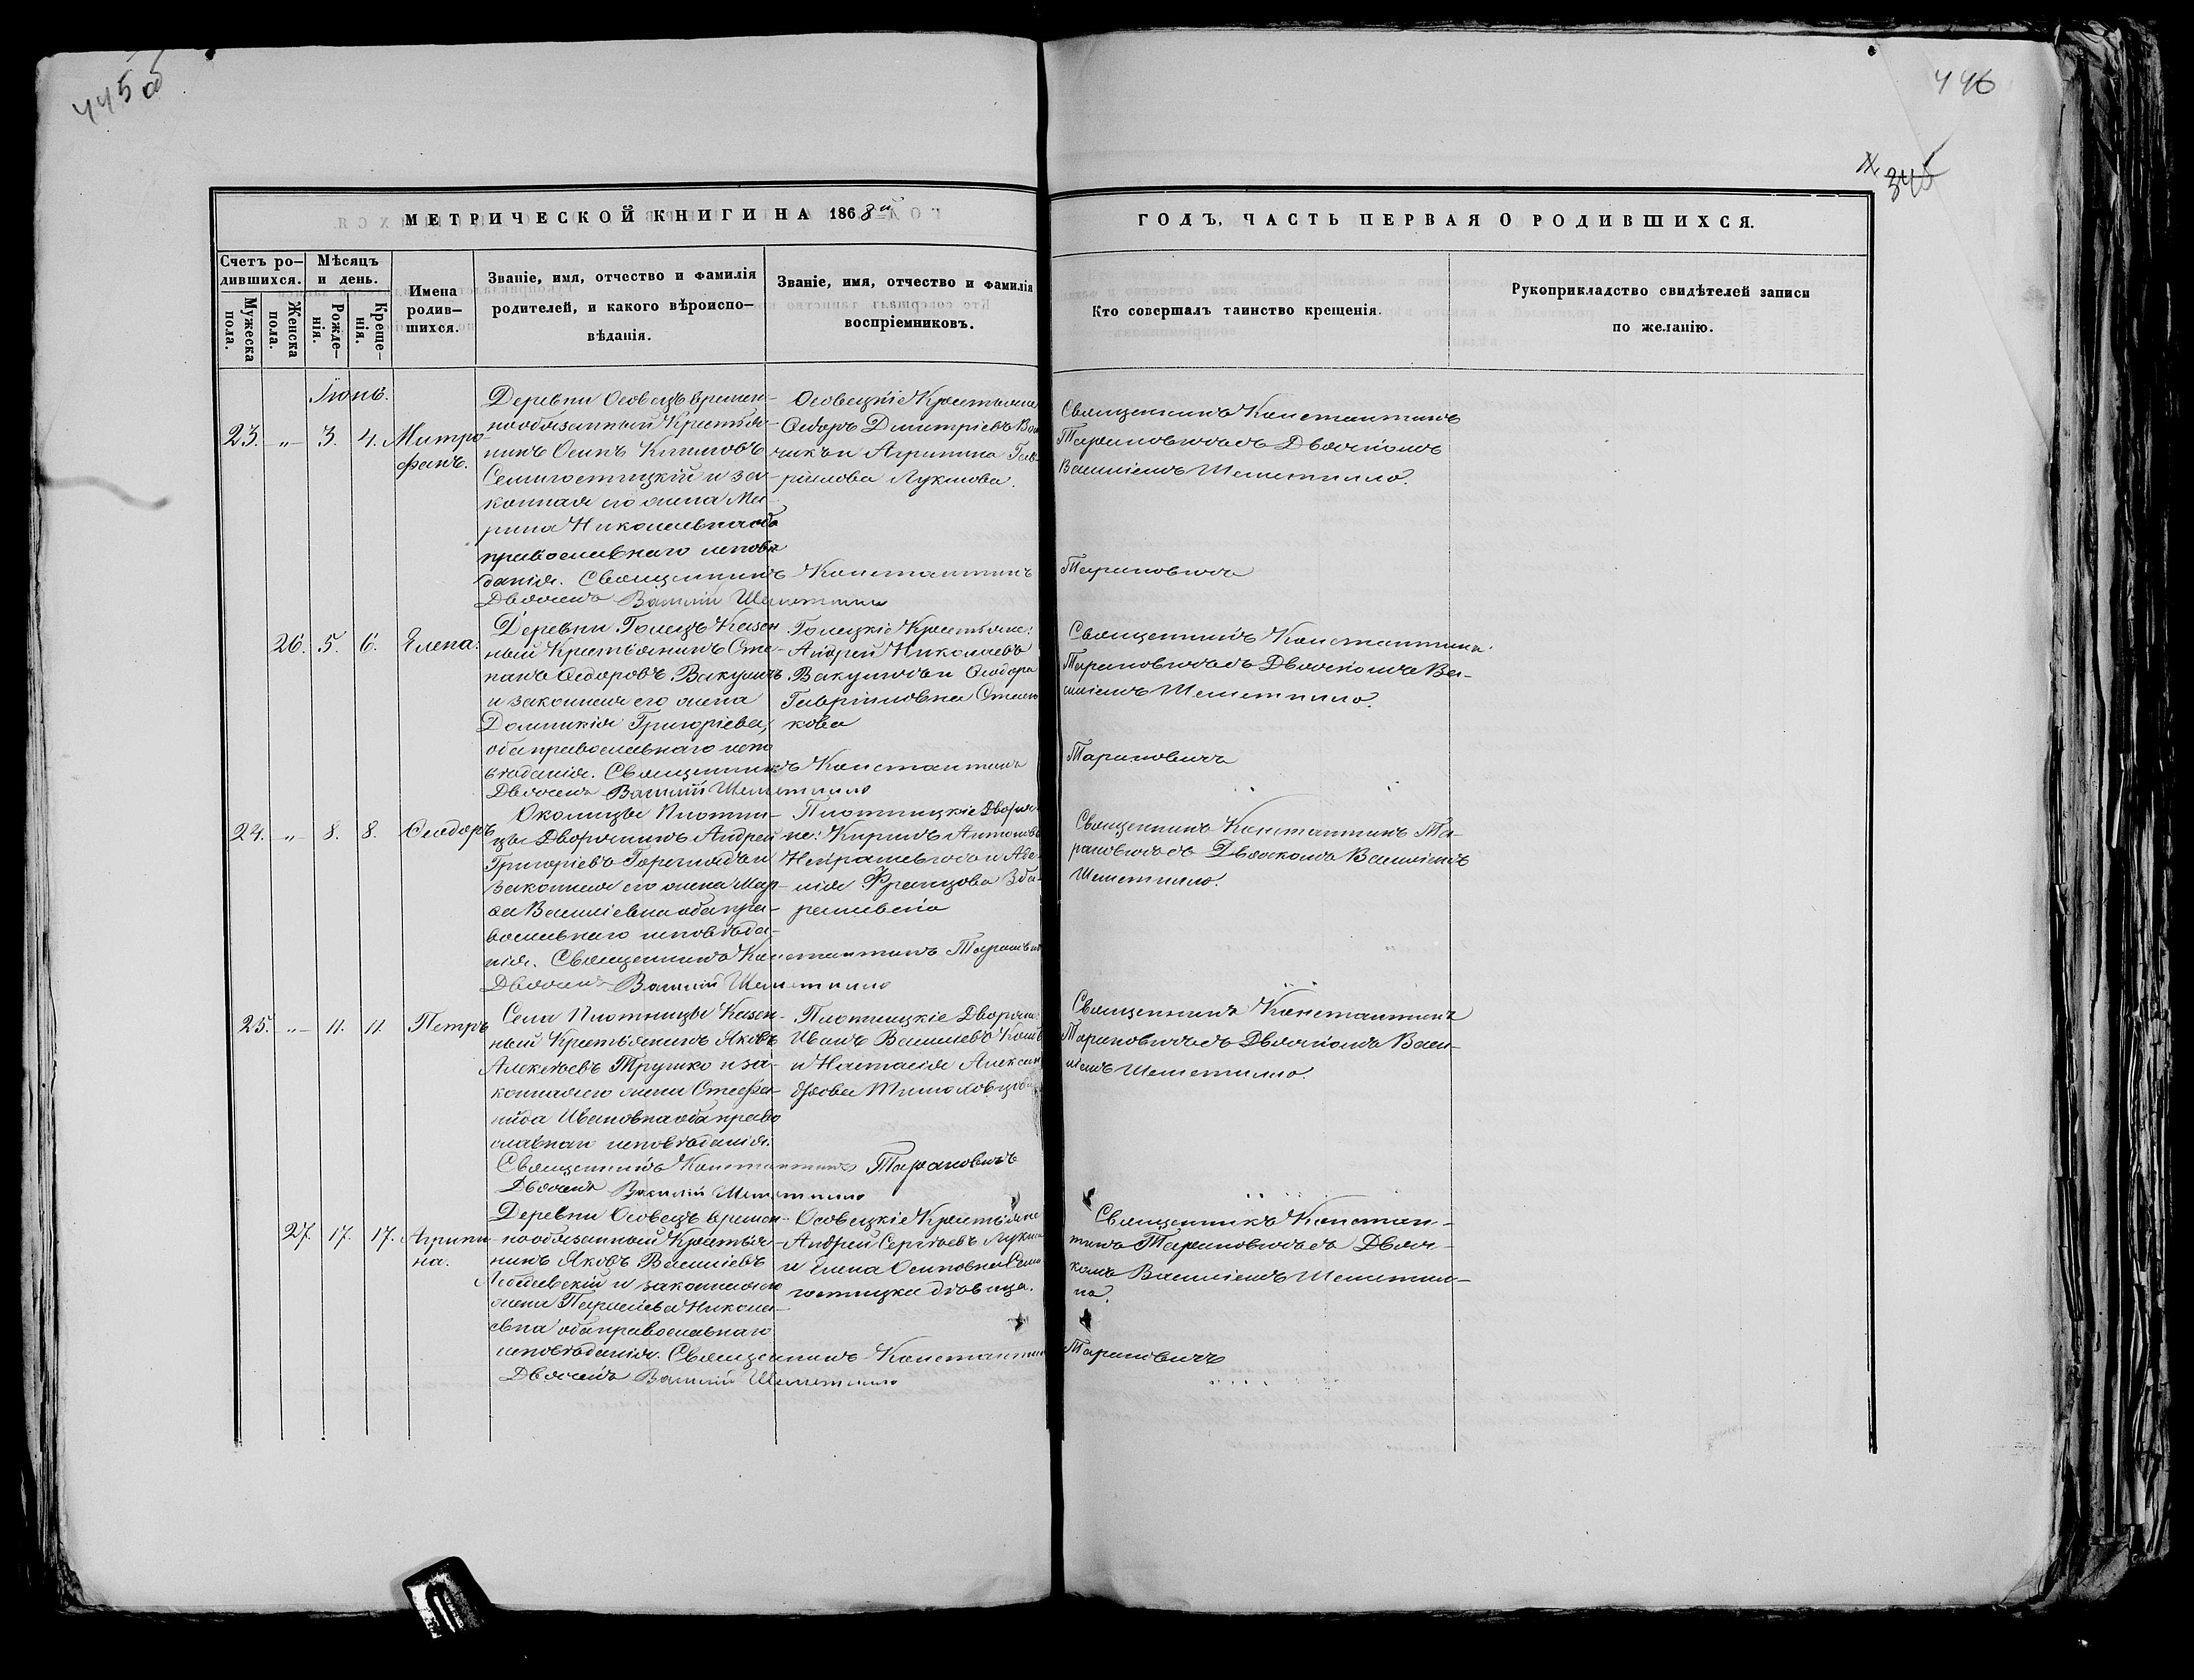 445об
446
345
МЕТРИЧЕСКОЙ КНИГИ НА 1868й
ГОДЪ, ЧАСТЬ ПЕРВАЯ О РОДИВШИХСЯ.
Счетъ ро-
дившихся.
Мужеска
пола.
Женска
пола.
Мѣсяцъ
и день.
Рожде-
нія.
Креще-
нія.
Имена
родив-
шихся.
Званіе, имя, отчество и фамилія
родителей, и какого вѣроиспо-
вѣданія.
Званіе, имя, отчество и фамилія
воспріемниковъ.
Кто совершалъ таинство крещенія.
Рукоприкладство свидѣтелей записи
по желанію.
Іюнь.
23. „— 3. 4. Митро-
фанъ.
Деревни Осовецъ времен-
нообязанный Крестья-
нинъ Осипъ Климовъ
Семигостицкій и за-
конная его жена Ма-
рина Николаевна оба
православнаго исповѣ
данія. Священникъ Константинъ
Дьячекъ Василій Шеметилло
Осовецкіе Крестьяне
Ѳедоръ Дмитріевъ
чикъ и Агрипина Гав-
рилова Лукшова.
Священникъ Константинъ
Тарановичъ съ Дьячкомъ
Василіемъ Шеметилло.
Тарановичъ
26. 5. 6. Елена.
Деревни Голецъ Казен
ный Крестьянинъ Сте-
панъ Ѳедоровъ Вакуличъ
и законная его жена
Домникія Григоріева,
оба православнаго испо
вѣданія. Священникъ Константинъ
Дьячекъ Василій Шеметилло
Голецкіе Крестьяне:
Андрей Николаевъ
Вакуличъ и Ѳеодора
Гавриловна
кова
Священникъ Константинъ
Тарановичъ съ Дьячкомъ Ва-
силіемъ Шеметилло.
Тарановичъ
24. „— 8. 8. Ѳеодоръ
Околицы Плотни-
цы Дворянинъ Андрей
Григоріевъ Горегляд и
законная его жена Мар-
ѳа Василіевна оба пра-
вославнаго исповѣда-
нія. Священникъ Константинъ Тарановичъ
Дьячекъ Василій Шеметилло
Плотницкіе Дворя-
не: Кирилъ Антоновъ
Некрашевичъ и
Францова Зба-
рашевска
Священникъ Константинъ Та-
рановичъ съ Дьячкомъ Василіемъ
Шеметилло.
25. „— 11. 11. Петръ
Села Плотницы Казен-
ный Крестьянинъ Яковъ
Алексѣевъ Трушко и за-
конная его жена Стефа-
нида Ивановна оба право
славнаго исповѣданія.
Священникъ Константинъ Тарановичъ
Дьячекъ Василій Шеметилло
Плотницкіе Дворяне
Иванъ Василіевъ
и Наталія Алексан
дрова
Священникъ Константинъ
Тарановичъ съ Дьячкомъ Васи-
ліемъ Шеметилло.
27. 17. 17. Агрипи-
на.
Деревни Осовецъ времен-
нообязанный Крестья-
нинъ Яковъ Василіевъ
Лебедевскій и законная его
жена Параскева Никола-
евна оба православнаго
исповѣданія. Священникъ Константинъ
Дьячекъ Василій Шеметилло
Осовецкіе Крестьяне
Андрей Сергѣевъ
и Елена Осиповна Семи
гостицка дѣвица.
Священникъ Констан-
тинъ Тарановичъ съ Дьяч-
комъ Василіемъ Шеметил-
ло.
Тарановичъ